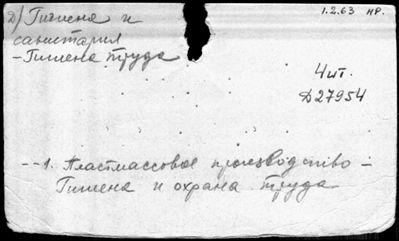 Д) Гигиена и
санитария
-Гигиена труда
1.2.63 НР.
4шт.
Д27954
--1. Пластмассовое производство -
Гигиена и охрана труда